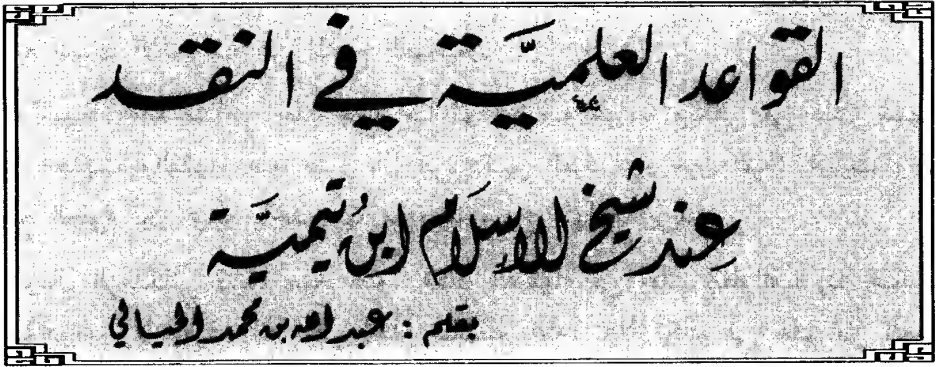 القواعد العلميَّة في النقد
عِند شيخ الإسلَام ابنُ تيميَّة
بقلم : عبد الله بن محمد الحيالي